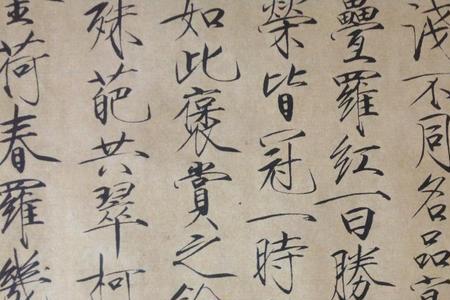 淺不同名品實
疊羅紅一曰勝
榮皆冠一時
如此褒賞之餘
殊葩共翠柯
金荷春羅幾